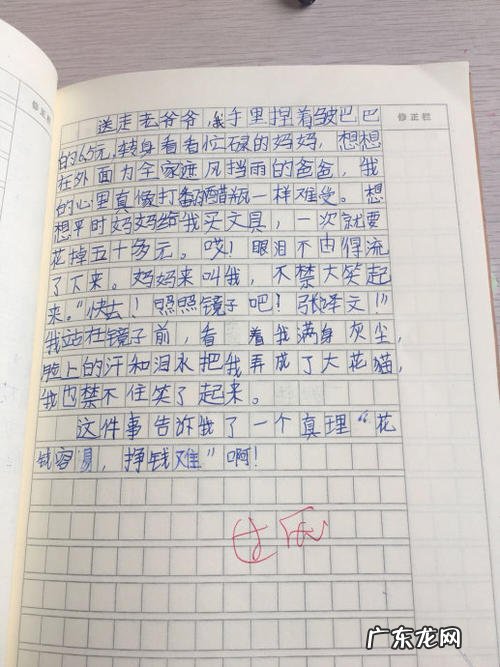 修正栏
修正栏
送走老爷爷,我手里捏着皱巴巴
的6.5元,转身看看忙碌的妈妈,想想
在外面为全家遮风挡雨的爸爸,我
的心里真像打番的醋瓶一样难受。想
想平时妈妈给我买文具,一次就要
花掉五十多元。哎!眼泪不由得流
了下来。妈妈来叫我,不禁大笑起
来。“快去!照照镜子吧!张译文!”
我站在镜子前,看着我满身灰尘,
脸上的汗和泪水把我弄成了大花猫,
我也禁不住笑了起来。
这件事告诉我了一个真理“花
钱容易,挣钱难”啊!
广东龙网